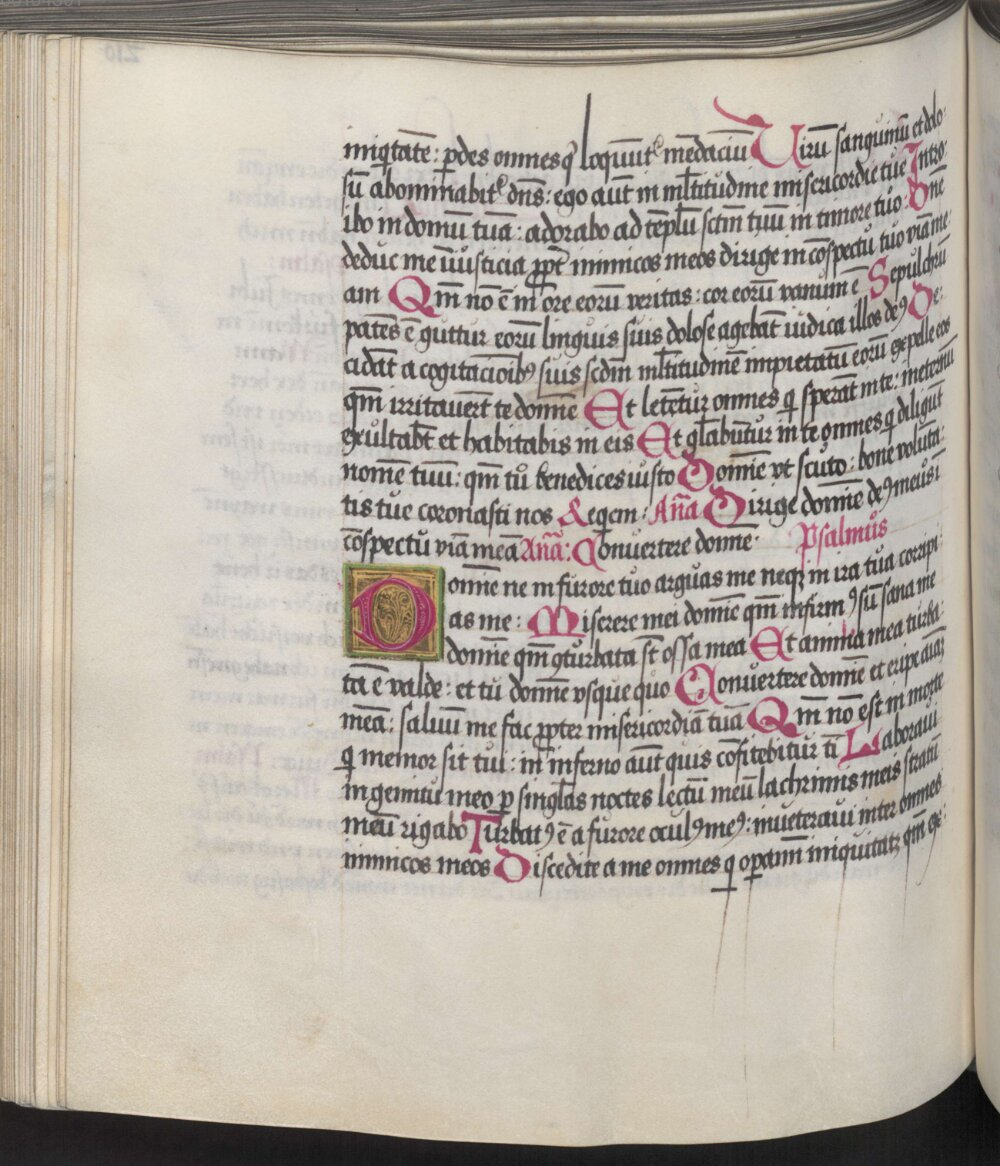 iniq̄tatē: ꝑdes omnes q̄ loquūtᷣ mēdaciū Virū sanguinū et dolo-
sū abominabitᷣ dn̄s: ego aūt in ml̄titudine misericordie tue Intro-
ibo in domū tuā: adorabo ad tēplū sc̄m tuū in timore tuo: Dn̄e
deduc me in iusticia ꝓpt̄ inimicos meos dirige in cōspectu tuo viā me-
am Qm̄ nō ē in ore eorū veritas: cor eorū vanum ē Sepulchrū
patēs ē guttur eorū linguis suis dolose agebāt iudica illos deꝰ De-
cidāt a cogitacionibꝰ suis scd̄m ml̄titudinē impietatū eorū expelle eos
qm̄ irritauer̄t te domīe Et letēt̄ur omnes q̄ sperāt in te: in eternū
exultab̄t et habitabis in eis Et gl̄abunt̄ur in te omnes q̄ diligūt
nomē tuū: qm̄ tū benedices iusto Domīe vt scuto: bone volūta-
tis tue coronasti nos Reqem: Añā Dirige domīe deꝰ meus ī
cōspectu tuo viā meā Añā: Conuertere domīe· Psalmus
Domīe ne in furore tuo arguas me neqꝫ in ira tua corripi-
as me: Miserere mei domīe qm̄ infirmꝰ sū sana me
domīe qm̄ ꝯturbata sūt ossa mea Et anima mea turba-
ta ē valde: et tū domīe vsquequo Conuertere domīe et eripe aīaꝫ
meā: saluū me fac ꝓpter misericordiā tuā Qm̄ nō est in morte
q̄ memor sit tui: in inferno aūt quis cōfitebitur tī Laboraui
in gemitu meo ꝑ singl̄as noctes lectū meū lachrimis meis stratū
meū rigabo Turbatꝰ ē a furore oculꝰ meꝰ: inueteraui inter omnes
inimicos meos Discedite a me omnes q̄ oꝑamī iniquitatꝫ qm̄ exe-